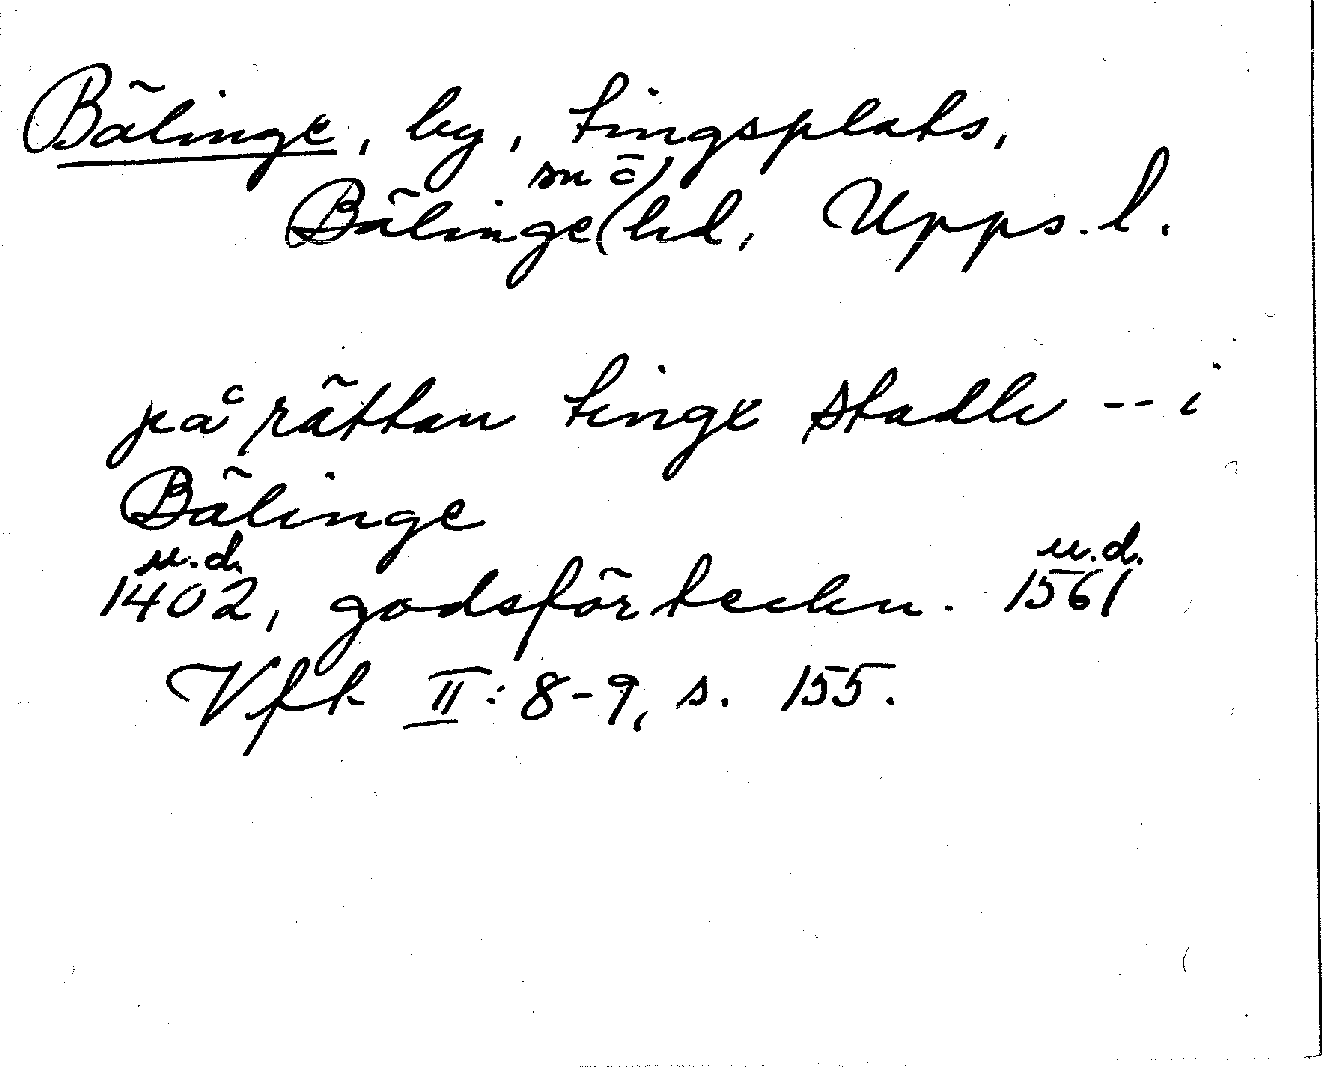 Bälinge, by, tingsplats,
sn o
Bälinge (hd, Upps. l.
på rättan tinge stadh -- i
Bälinge
u.d. u.d.
1402, godsförteckn. 1561
Vfk II: 8-9, s. 155.